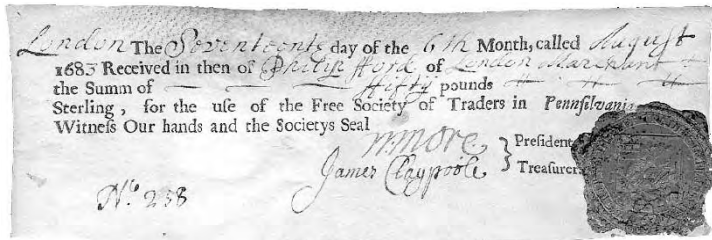 London The Soventeenth day of the 6th Month, called August
1683 Received in then of Philip Ford of London Marchant
the Summ of fifty pounds
Sterling, for the use of the Free Society of Traders in Pennsilvania
Witness Our hands and the Societys Seal
N. More President
James Claypoole Treasurer
No. 238